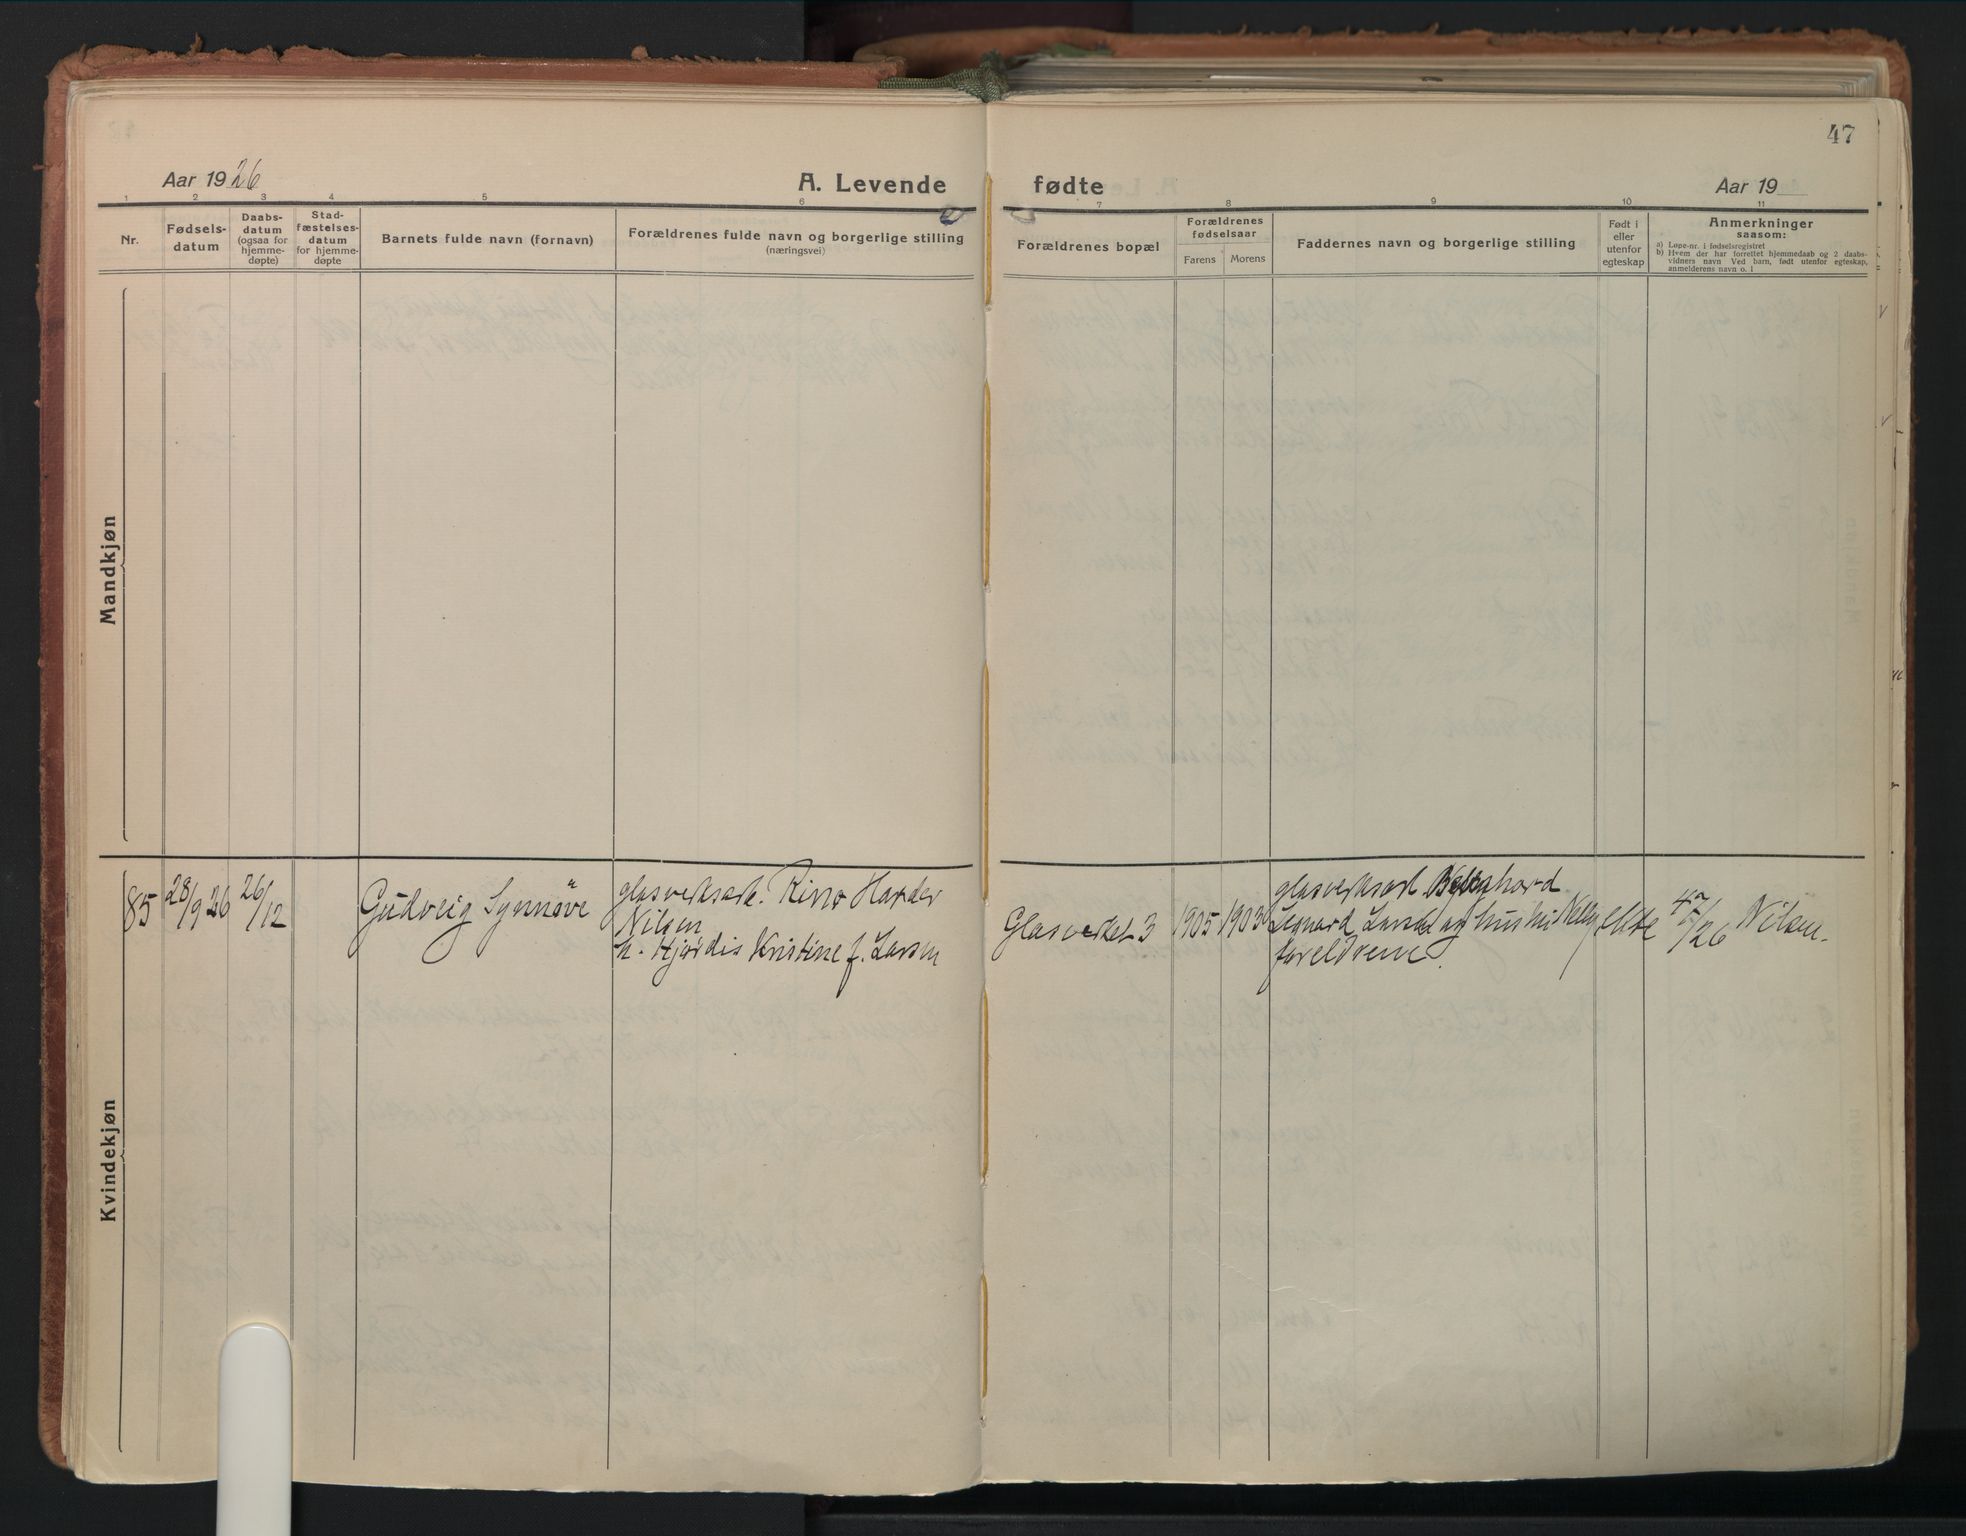 47
Aar 1926
A. Levende fødte
Aar 19
1 2 3 4 5 6 7 8 9 10 11
Nr.
Fødsels-
datum
Daabs-
datum
(ogsaa for
hjemme-
døpte)
Stad-
fæstelses-
datum
for hjemme-
døpte
Barnets fulde navn (fornavn)
Forældrenes fulde navn og borgerlige stilling
(næringsvei)
Forældrenes bopæl
Forældrenes
fødselsaar
Farens Morens
Faddernes navn og borgerlige stilling
Født i
eller
utenfor
egteskap
Anmerkninger
saasom:
a) Løpe-nr. i fødselsregistret
b) Hvem der har forrettet hjemmedaab og 2 daabs-
vidners navn Ved barn, født utenfor egteskap,
anmelderens navn o. l
Mandkjøn
Kvindekjøn
85
28/9 26
26/12
Gudveig Synnøve
glasverksarb. Rino Harder
Nilsen
h. Hjørdis Kristine f. Larsen
Glasverket 3
1905
1903
glasverksarb
foreldrene.
ekte
Nilsen.